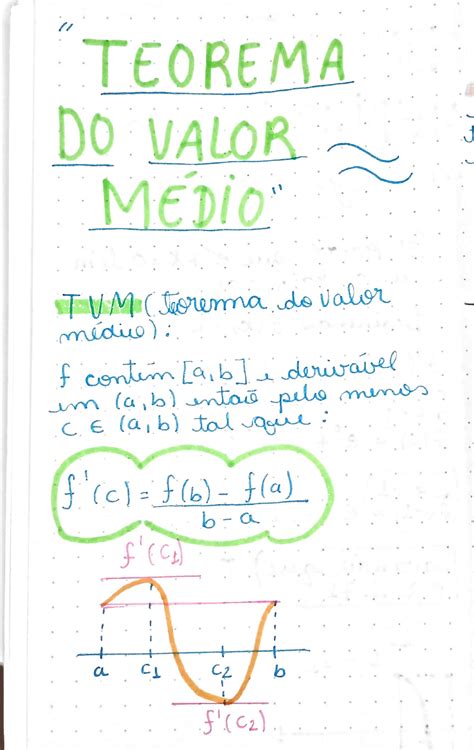 "TEOREMA
DO VALOR
MÉDIO"
TVM (teorema do valor
médio):
f contém [a,b] e derivável
em (a,b) então pelo menos
c ∈ (a,b) tal que:
f'(c) = f(b) - f(a)
b - a
f'(c1)
a c1 c2 b
f'(c2)